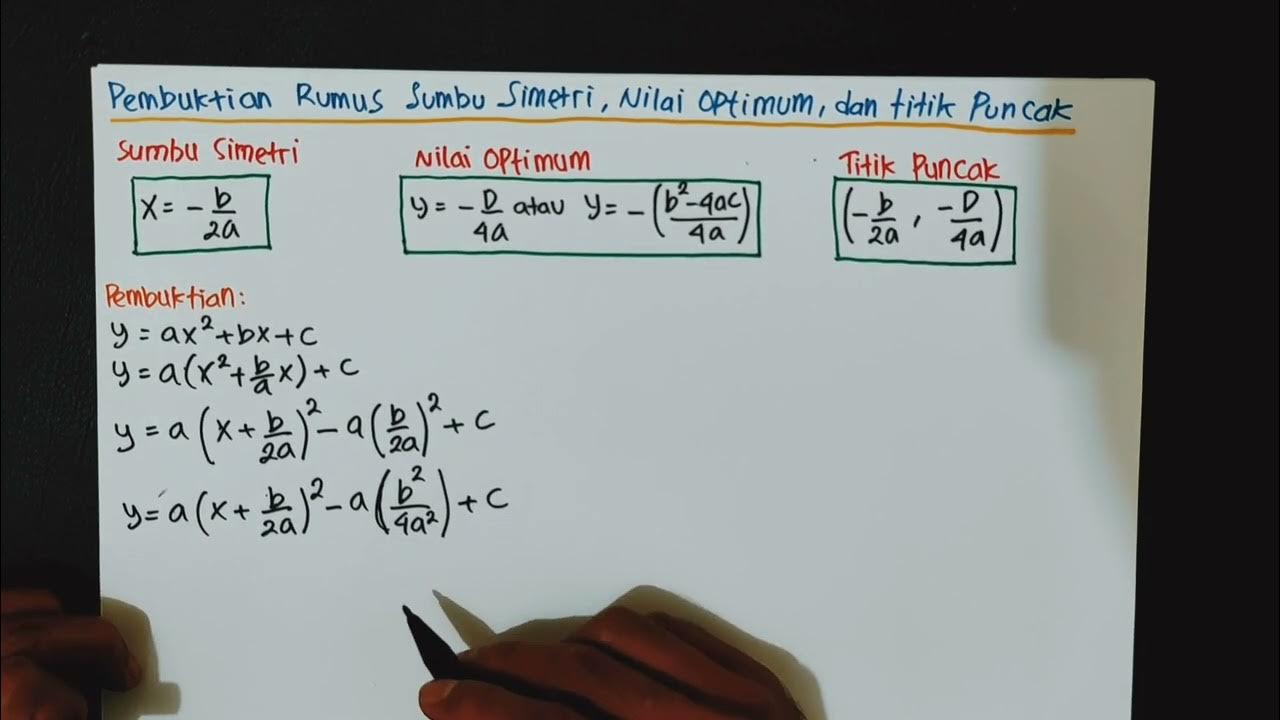 Pembuktian Rumus Sumbu Simetri, Nilai Optimum, dan titik Puncak
Sumbu Simetri
x = - b/2a
Nilai Optimum
y = - D/4a atau y = - (b²-4ac/4a)
Titik Puncak
(-b/2a , -D/4a)
Pembuktian:
y = ax² + bx + c
y = a(x² + b/a x) + c
y = a (x + b/2a)² - a (b/2a)² + c
y = a (x + b/2a)² - a (b²/4a²) + c